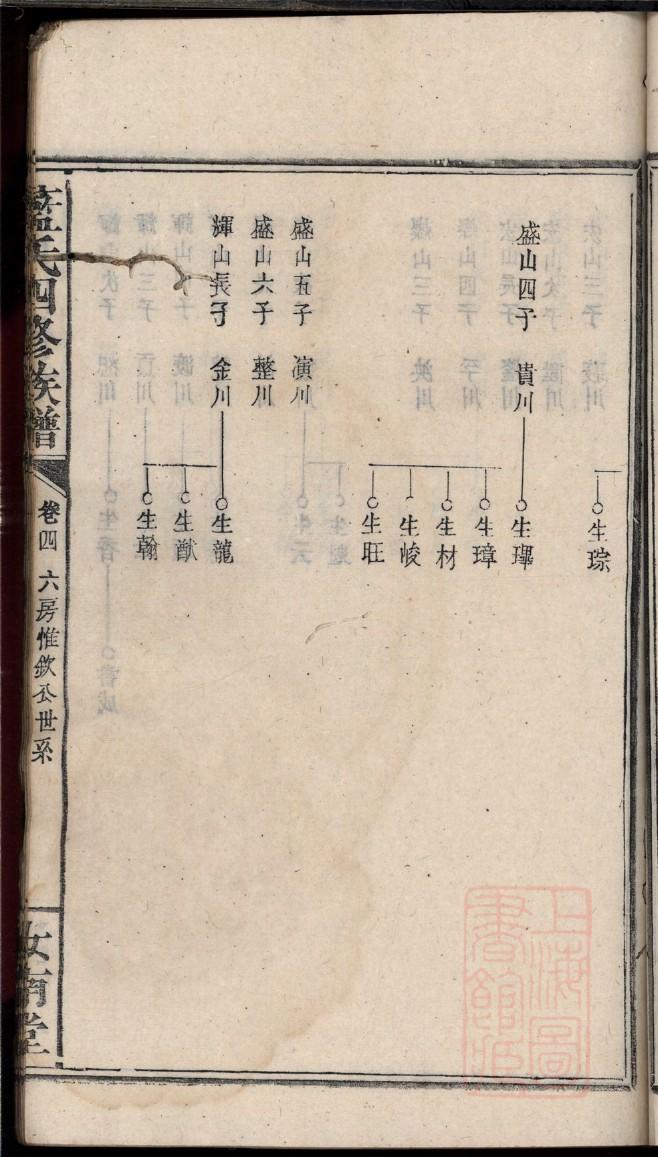 生琮
盛山四子 貴川 生琿
生璋
生材
生峻
生旺
盛山五子 演川
盛山六子 整川
輝山長子 金川 生龍
生猷
生翰
藍氏四修族譜
卷四 六房惟欽公世系
汝南堂
上海圖
書館藏